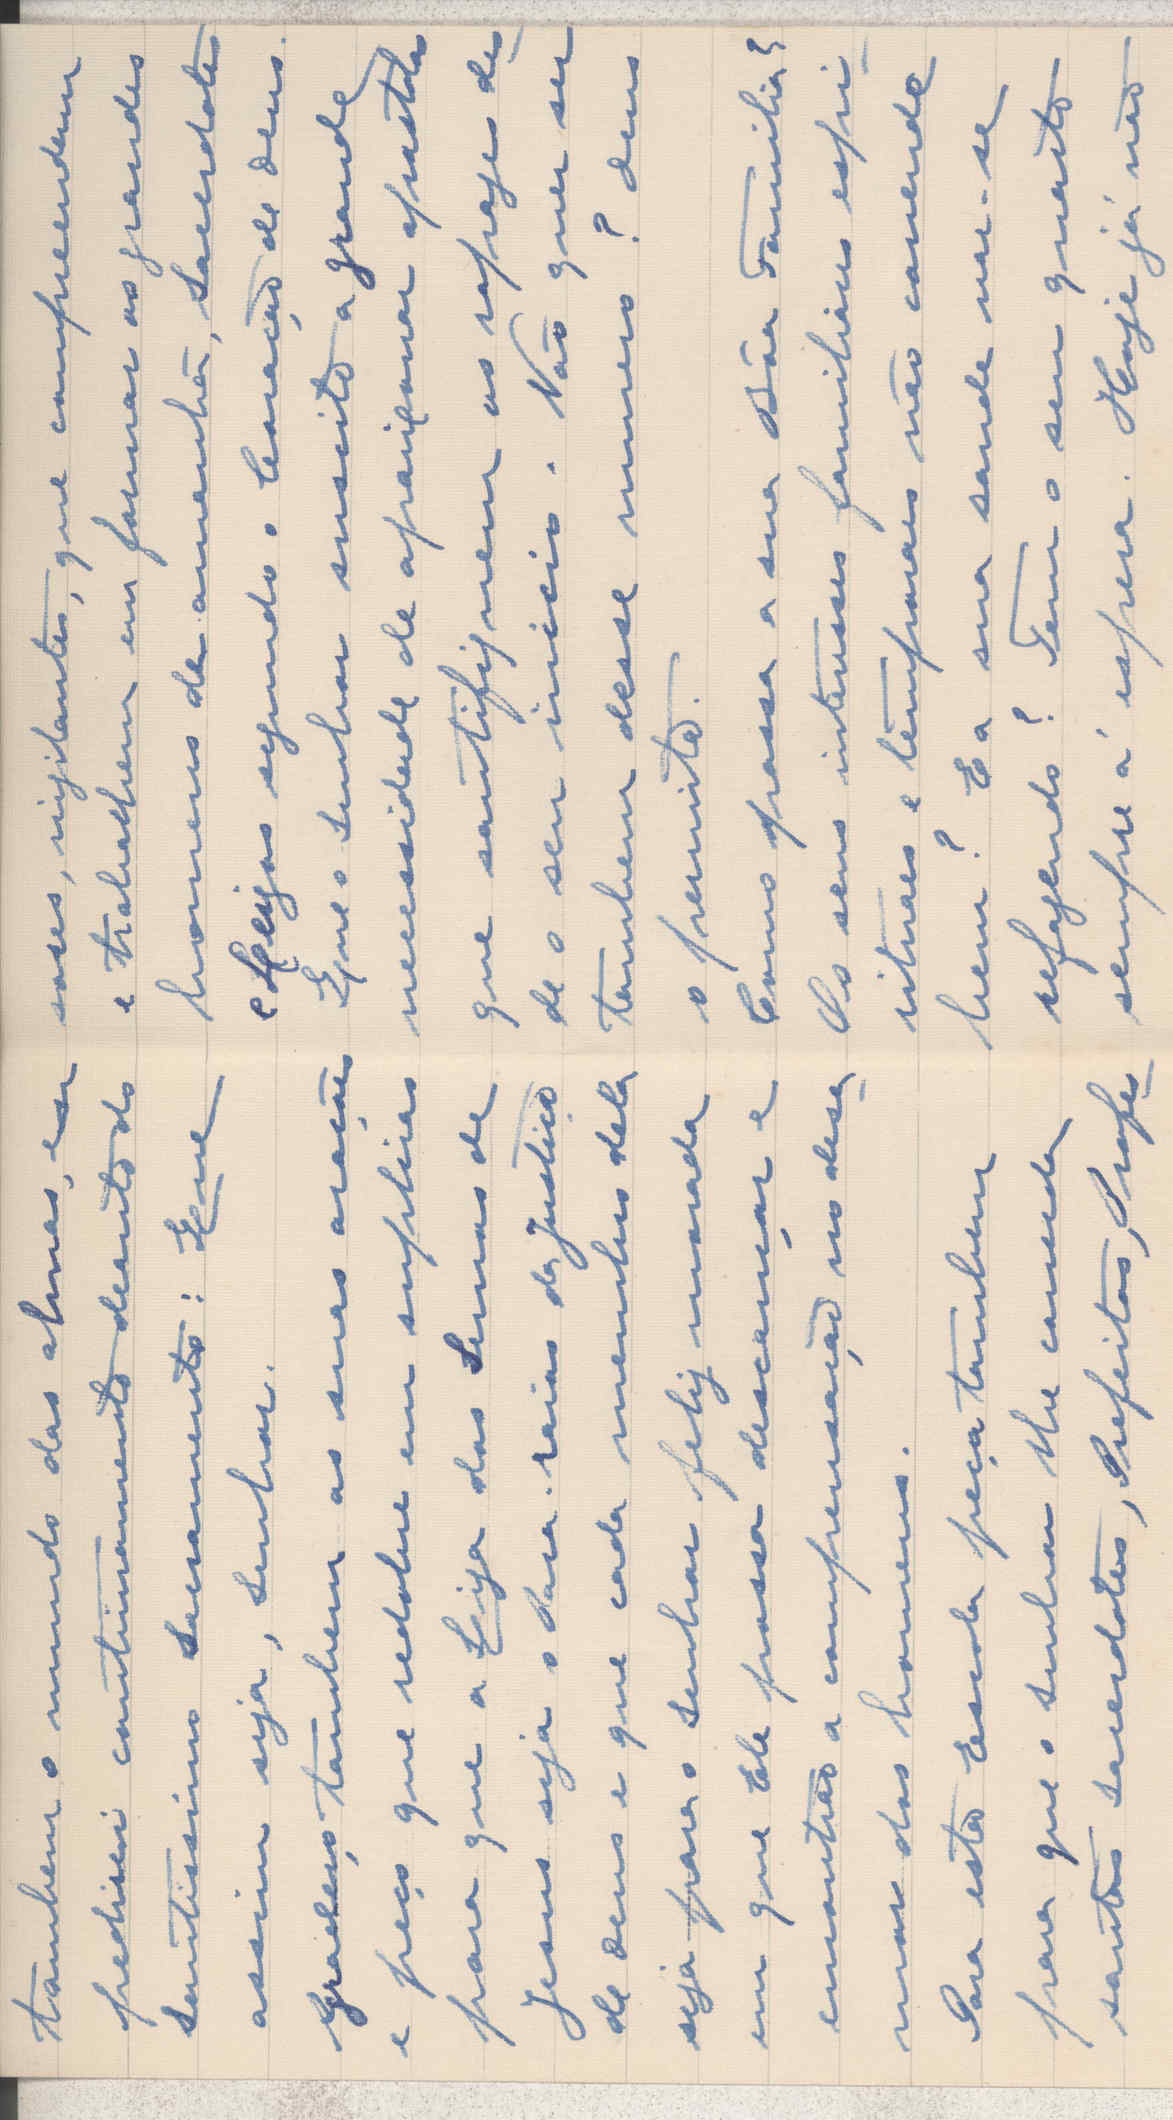 tambem o mundo das almas, eu
predisse continuamente deante do
Santissimo Sacramento: Que
assim seja, Senhor.
Agradeço tambem as suas orações
e peço que redobre em suplicas
para que a Liga das Servas de
Jesus seja o Para-raios da Justiça
de Deus e que cada membro dela
seja para o Senhor feliz morada
em que Ele possa descançar e
encontrar a compensação no desa
mor dos homens.
Para esta Escola peça tambem
para que o Senhor lhe conceda
santos sacerdotes, Prefeitos, Profes
sores, vigilantes, que compreendem
e trabalhem em formar os grandes
homens de amanhã, Sacerdotes
e Leigos segundo o Coração de Deus.
Que o Senhor suscite a grande
necessidade de aproximar apostolos
que santifiquem os rapazes des
de o seu inicio. Não quer ser
tambem desse numero? Deus
o permita.
Como passa a sua Bôa Familia?
Os seus interesses familiares espi
rituaes e temporaes vão correndo
bem? E a sua saude vae-se
refazendo? Tem o seu quarto
sempre á espera. Hoje já não